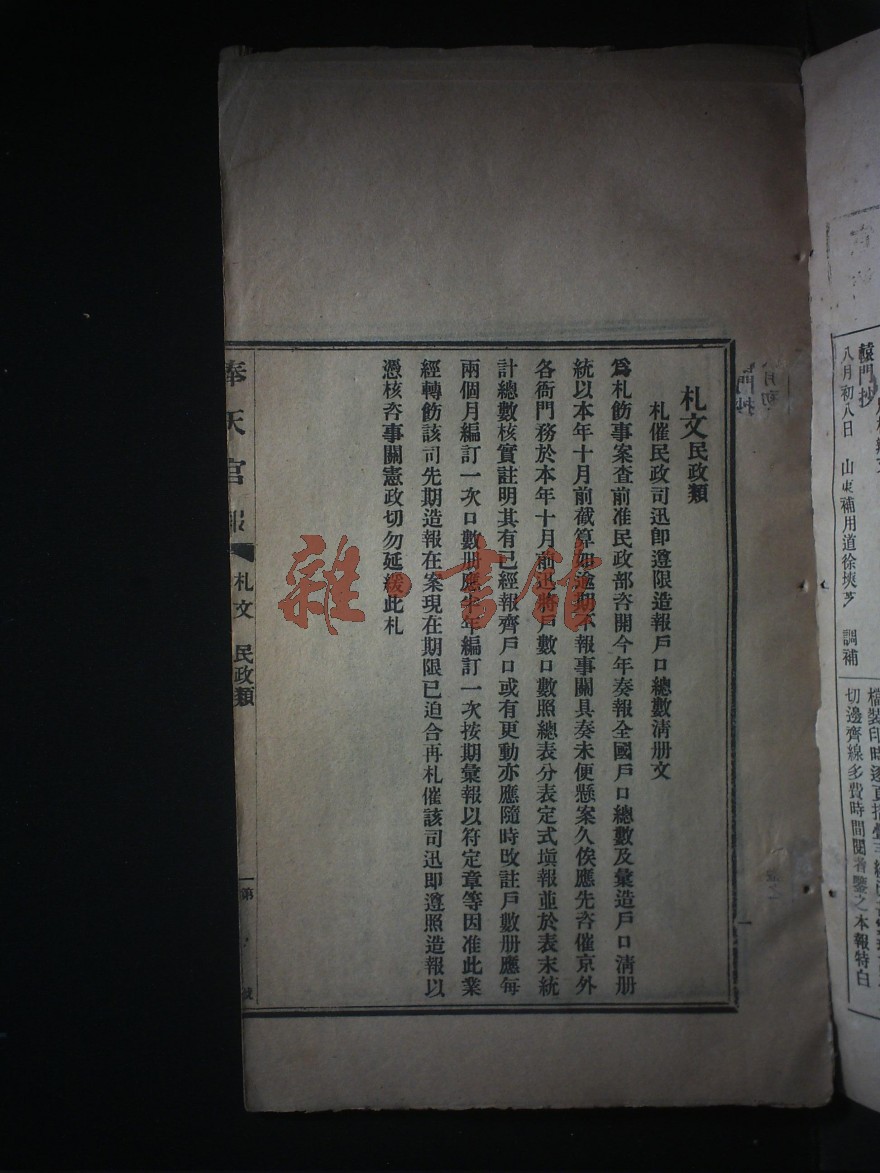 札文民政類
札催民政司迅卽遵限造報戶口總數淸册文
爲札飭事案查前准民政部咨開今年奏報全國戶口總數及彙造戶口淸册
統以本年十月前截算如逾期不報事關具奏未便懸案久俟應先咨催京外
各衙門務於本年十月前迅將戶數口數照總表分表定式塡報並於表末統
計總數核實註明其有已經報齊戶口或有更動亦應隨時改註戶數册應每
兩個月編訂一次口數册應半年編訂一次按期彙報以符定章等因准此業
經轉飭該司先期造報在案現在期限已迫合再札催該司迅卽遵照造報以
憑核咨事關憲政切勿延緩此札
奉天官報 札文 民政類 第 號
轅門抄
八月初八日 山東補用道徐 調補
切邊齊線多費時間閱者鑒之本報特白
雜·書館